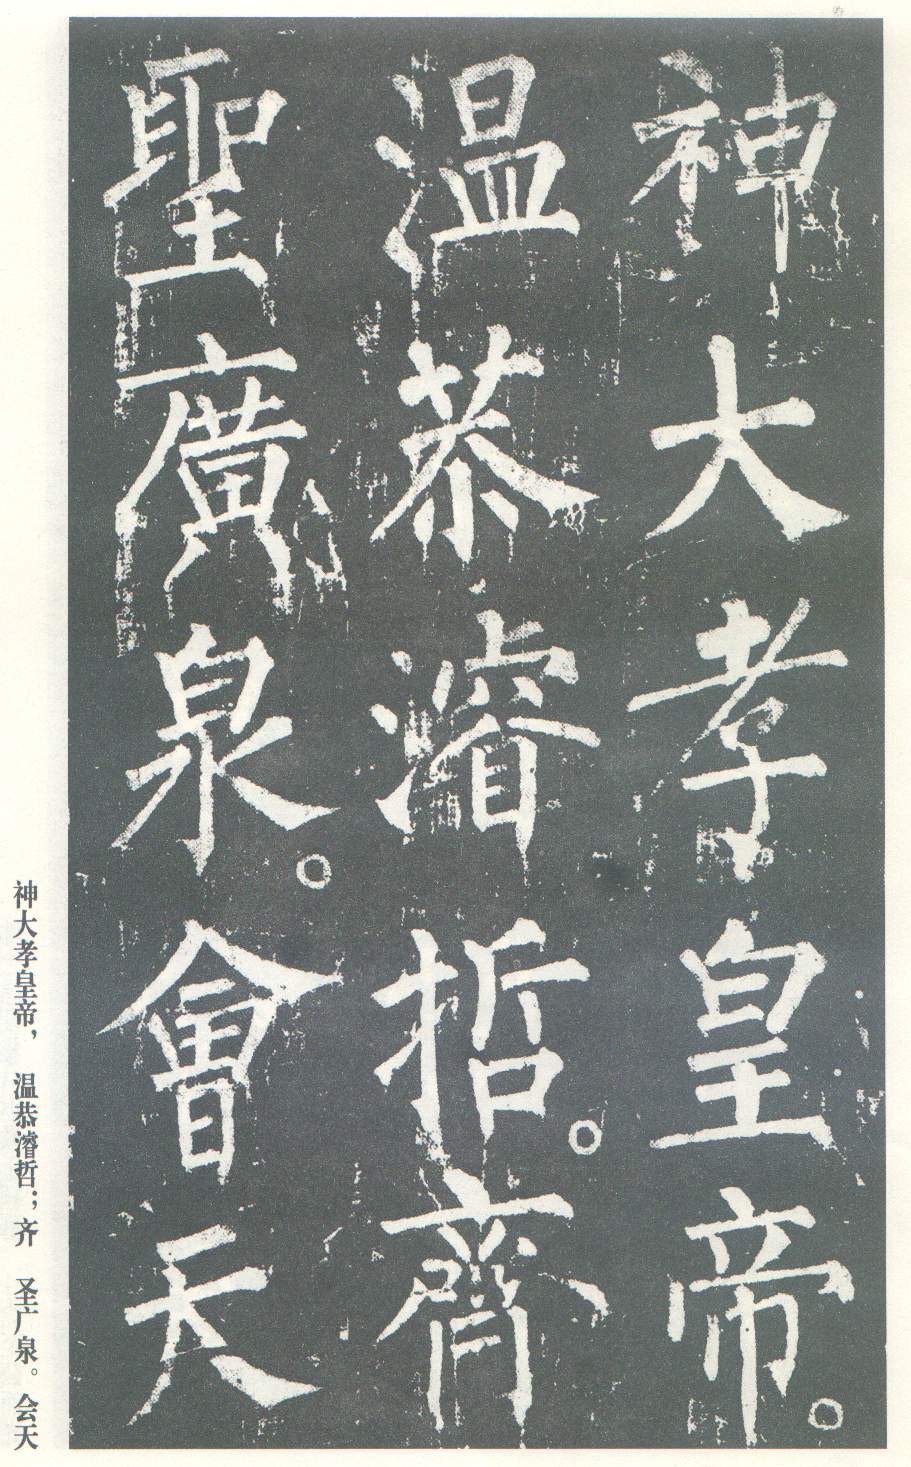 神大孝皇帝。
温恭濬哲。齊
聖廣泉。會天
神大孝皇帝，温恭濬哲；齐圣广泉。会天